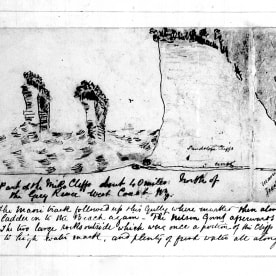 Sandstone Cliffs
Part of the Nile Cliffs about 40 miles North of
the Grey River West Coast N.Z.
The Maori track followed up this Gully where marked then along
ladder on to the Beach again - The Nelson Govt afterwards
The two large rocks outside which were once a portion of the Cliffs
to high water mark, and plenty of fresh water all along